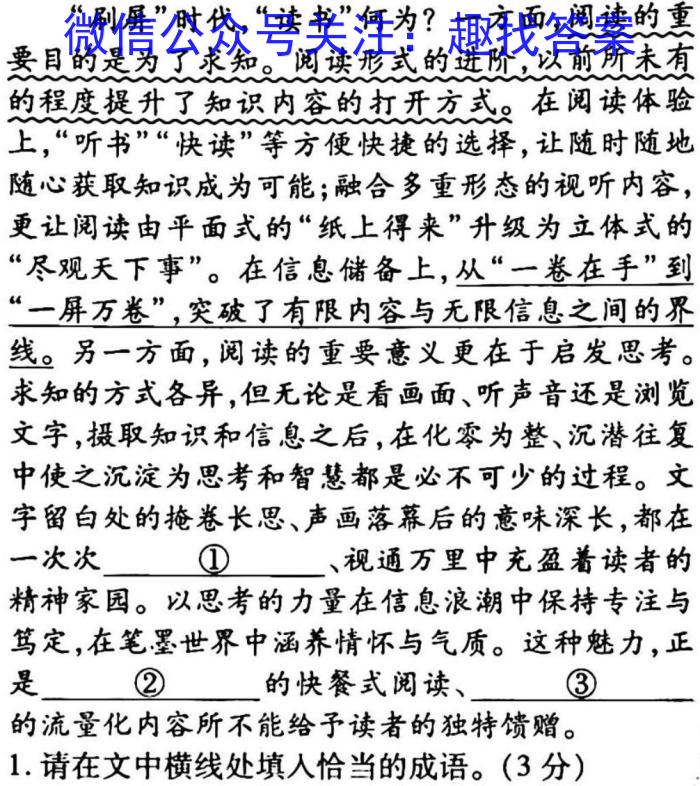 “刷屏”时代，“读书”何为？一方面，阅读的重
微信公众号关注：趣找答案
要目的是为了求知。阅读形式的进阶，以前所未有
的程度提升了知识内容的打开方式。在阅读体验
上，“听书”“快读”等方便快捷的选择，让随时随地
随心获取知识成为可能；融合多重形态的视听内容，
更让阅读由平面式的“纸上得来”升级为立体式的
“尽观天下事”。在信息储备上，从“一卷在手”到
“一屏万卷”，突破了有限内容与无限信息之间的界
线。另一方面，阅读的重要意义更在于启发思考。
求知的方式各异，但无论是看画面、听声音还是浏览
文字，摄取知识和信息之后，在化零为整、沉潜往复
中使之沉淀为思考和智慧都是必不可少的过程。文
字留白处的掩卷长思、声画落幕后的意味深长，都在
一次次①、视通万里中充盈着读者的
精神家园。以思考的力量在信息浪潮中保持专注与
笃定，在笔墨世界中涵养情怀与气质。这种魅力，正
是②的快餐式阅读、③
的流量化内容所不能给予读者的独特馈赠。
1.请在文中横线处填入恰当的成语。（3分）